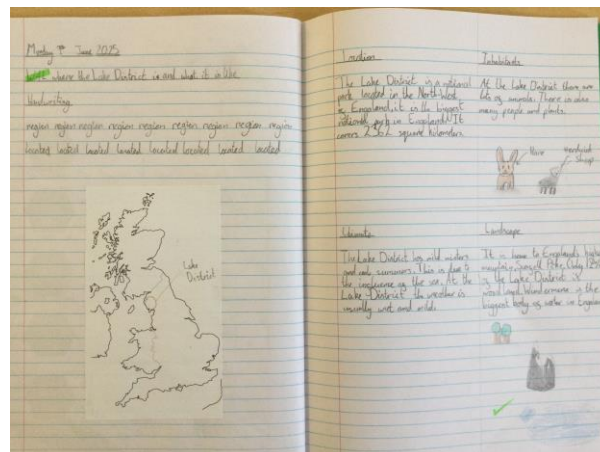 Monday 9th June 2025
where the Lake District is and what it is like.
Handwriting
region region region region region region region region region
located located located located located located located located
Lake
District
Location
The Lake District is a national
park located in the North-West
of England. It is the biggest
national park in England. It
covers 2362 square kilometers.
Inhabitants
At the Lake District there are
lots of animals. There is also
many people and plants.
Hare
Herdwick
Sheep
Climate
The Lake District has mild winters
and cool summers. This is due to
the influence of the sea. At the
Lake-District the weather is
usually wet and mild.
Landscape
It is home to England's highest
mountain,
of the Lake District is
wood and Windermere is the
biggest body of water in England